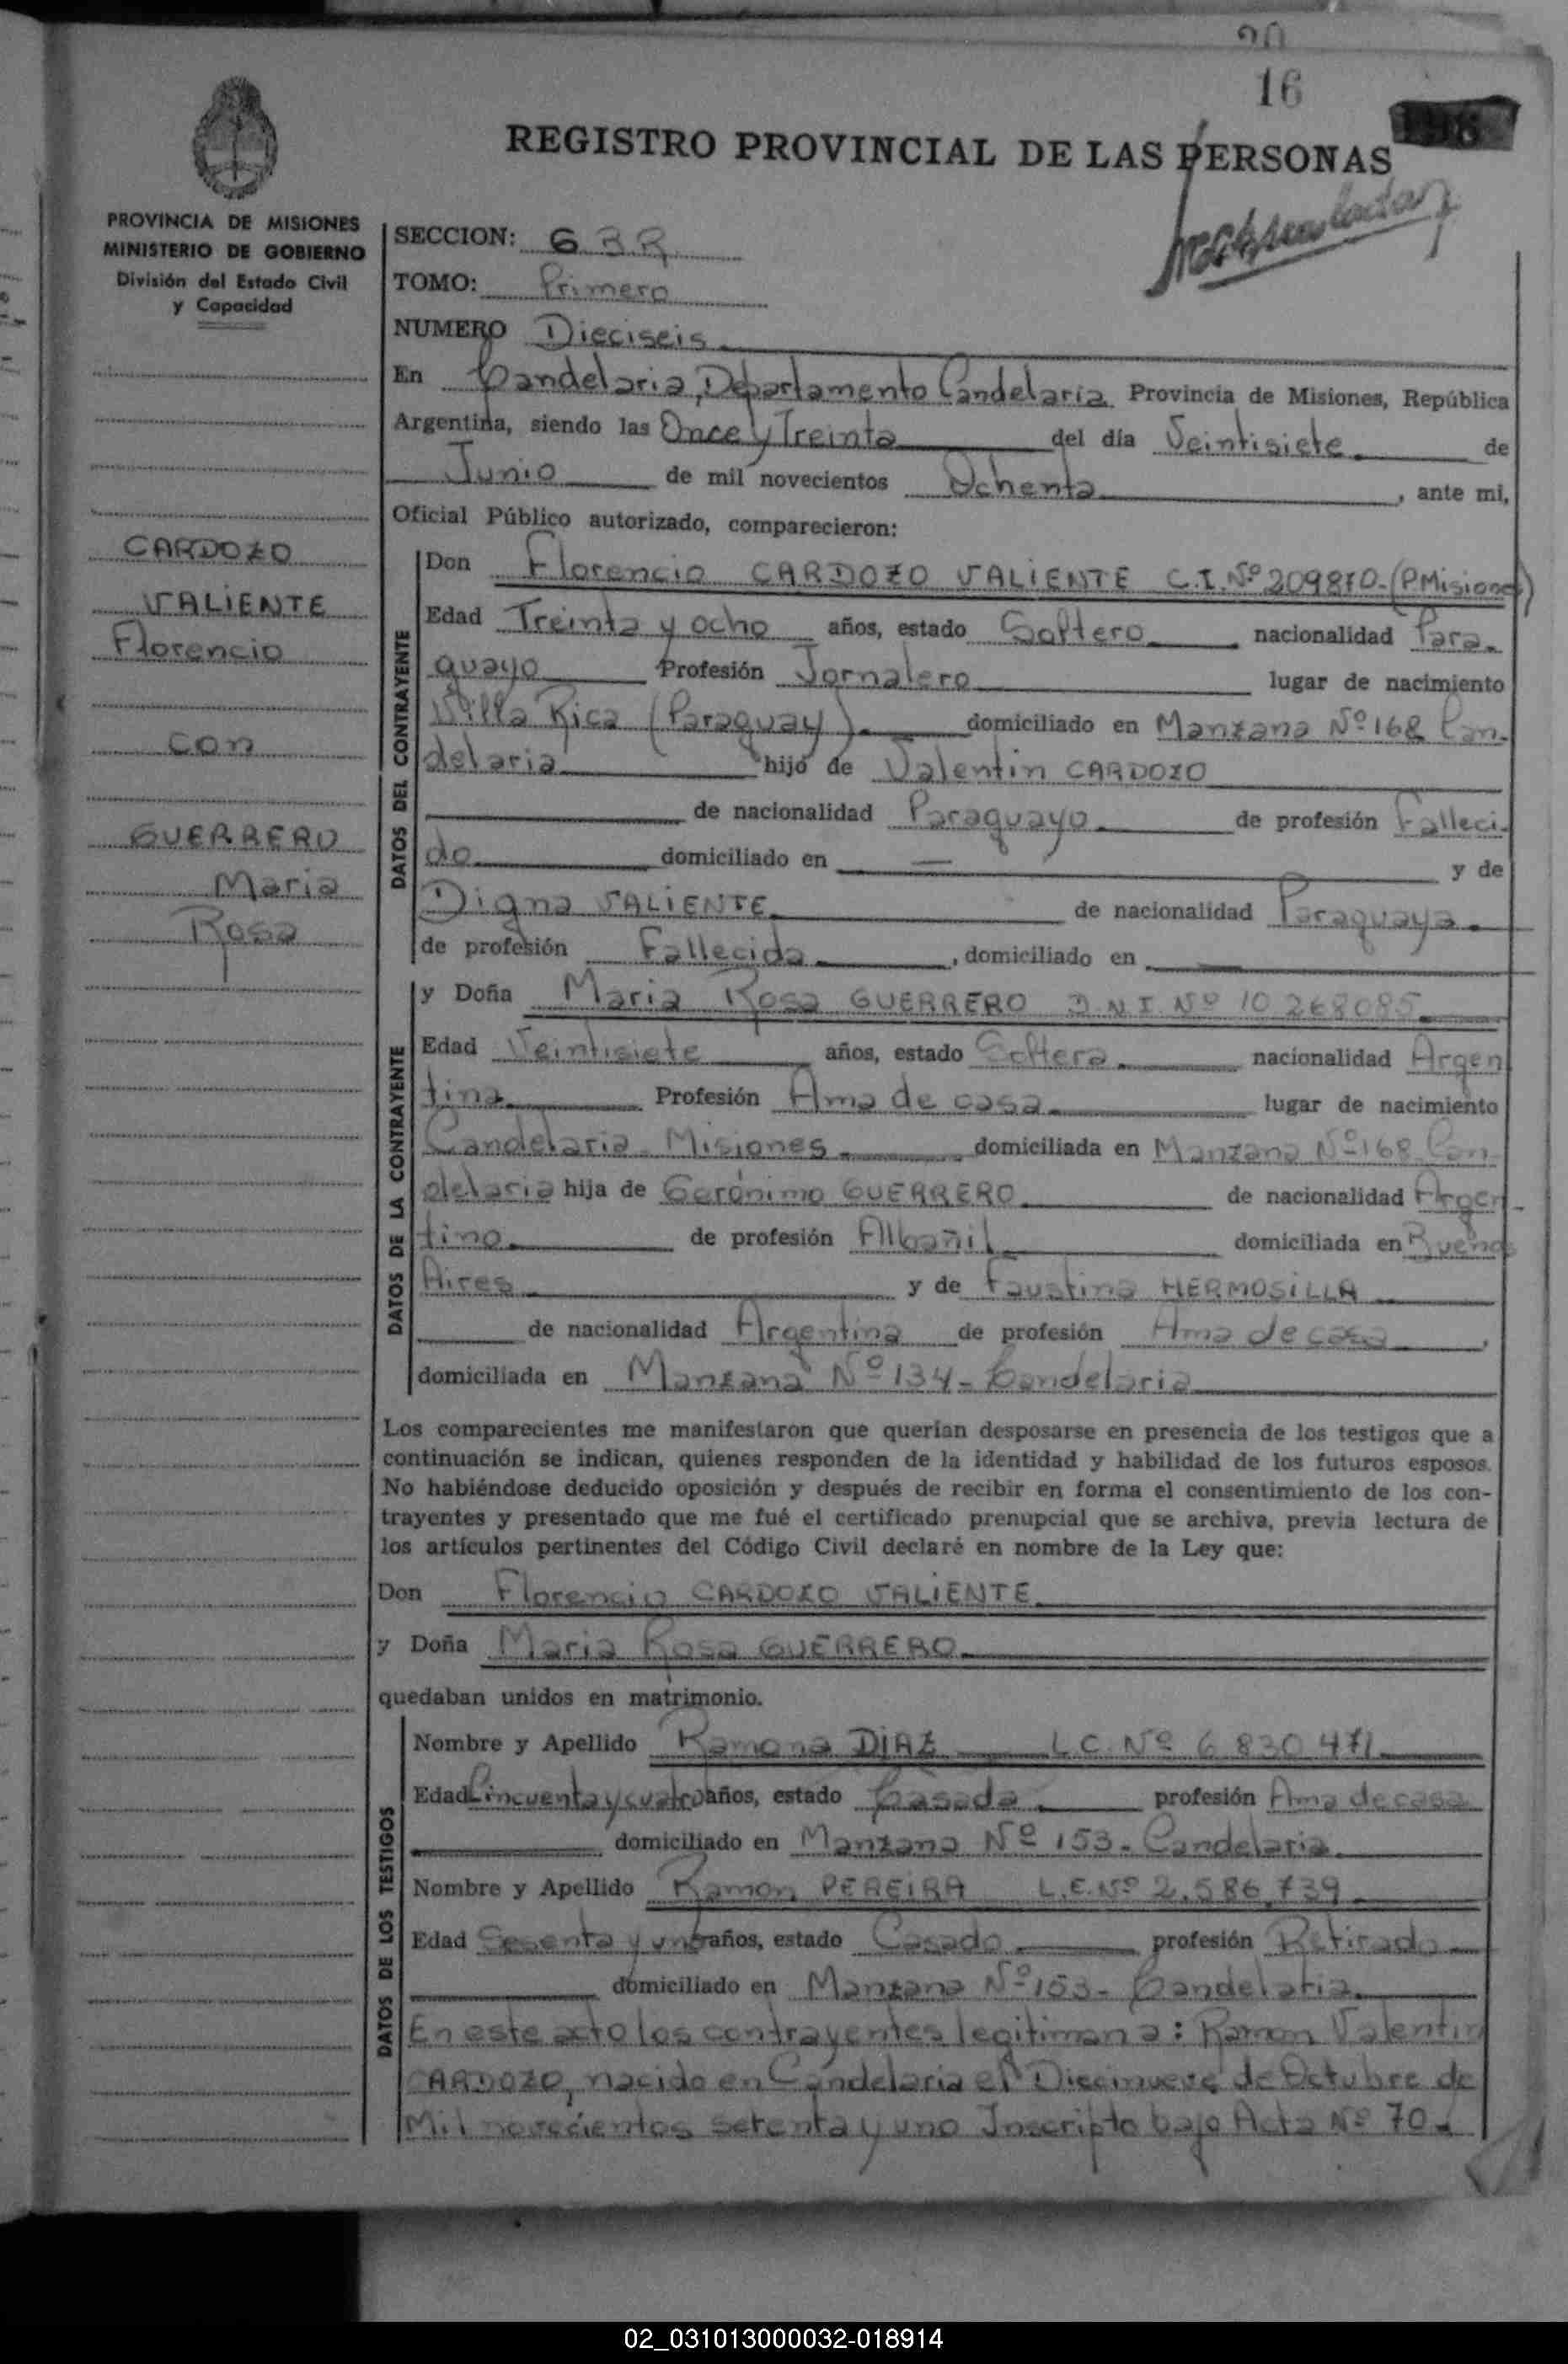 16
REGISTRO PROVINCIAL DE LAS PERSONAS
PROVINCIA DE MISIONES
MINISTERIO DE GOBIERNO
División del Estado Civil
y Capacidad
CARDOZO
VALIENTE
Florencio
con
GUERRERO
Maria
Rosa
SECCION: 63R
TOMO: Primero
NUMERO Dieciseis
En Candelaria, Departamento Candelaria Provincia de Misiones, República
Argentina, siendo las Once y Treinta del día Veintisiete de
Junio de mil novecientos Ochenta, ante mi,
Oficial Público autorizado, comparecieron:
DATOS DEL CONTRAYENTE
Don Florencio CARDOZO VALIENTE C.I. Nº 209870-(P.Misiones)
Edad Treinta y ocho años, estado Soltero nacionalidad Para-
guayo Profesión Jornalero lugar de nacimiento
Villa Rica (Paraguay) domiciliado en Manzana Nº 168 Can-
delaria hijo de Valentin CARDOZO
de nacionalidad Paraguayo de profesión Falleci-
do domiciliado en — y de
Digna VALIENTE de nacionalidad Paraguaya
de profesión Fallecida, domiciliado en —
DATOS DE LA CONTRAYENTE
y Doña Maria Rosa GUERRERO D.N.I. Nº 10 268085
Edad Veintisiete años, estado Soltera nacionalidad Argen
tina Profesión Ama de casa lugar de nacimiento
Candelaria - Misiones domiciliada en Manzana Nº 168 Can-
delaria hija de Gerónimo GUERRERO de nacionalidad Argen-
tino de profesión Albañil domiciliada en Buenos
Aires y de Faustina HERMOSILLA
de nacionalidad Argentina de profesión Ama de casa,
domiciliada en Manzana Nº 134 - Candelaria
Los comparecientes me manifestaron que querían desposarse en presencia de los testigos que a
continuación se indican, quienes responden de la identidad y habilidad de los futuros esposos.
No habiéndose deducido oposición y después de recibir en forma el consentimiento de los con-
trayentes y presentado que me fué el certificado prenupcial que se archiva, previa lectura de
los artículos pertinentes del Código Civil declaré en nombre de la Ley que:
Don Florencio CARDOZO VALIENTE
y Doña Maria Rosa GUERRERO
quedaban unidos en matrimonio.
DATOS DE LOS TESTIGOS
Nombre y Apellido Ramona DIAZ L.C. Nº 6 830 471
Edad Cincuenta y cuatro años, estado Casada profesión Ama de casa
domiciliado en Manzana Nº 153 - Candelaria
Nombre y Apellido Ramon PEREIRA L.E. Nº 2.586.739
Edad Sesenta y uno años, estado Casado profesión Retirado
domiciliado en Manzana Nº 153 - Candelaria
En este acto los contrayentes legitiman a: Ramon Valentin
CARDOZO, nacido en Candelaria el Diecinueve de Octubre de
Mil novecientos setenta y uno Inscripto bajo Acta Nº 70.
02_031013000032-018914